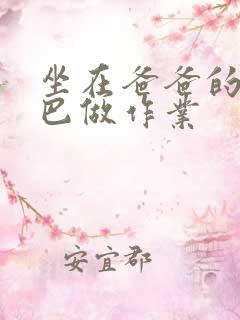 坐在爸爸的
巴做作业
安宜郡